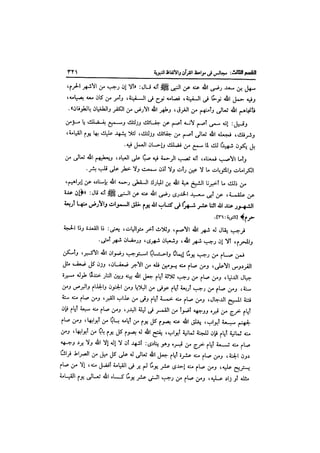 القسم الثالث: مجالس في مواعظ القرآن والألفاظ النبوية ٣٢١
سهل بن سعد رضي الله عنه عن النبي ﷺ أنه قال: «ألا إن رجب من الأشهر الحرم،
وفيه حمل الله نوحًا في السفينة، فصامه نوح في السفينة، وأمر من كان معه بصيامه،
فأنجاهم الله تعالى وأمنهم من الغرق، وطهر الله الأرض من الكفر والطغيان بالطوفان».
وقيل: إنه سمى أصم لأنه أصم عن جفائك وزلتك وسميع بفضلك يا مؤمن
وشرفك، فجعله الله تعالى أصم من جفائك وزلتك، لئلا يشهد عليك بها يوم القيامة،
بل يكون شهيدًا لك لما سمع من فضلك وإحسان العمل فيه.
وأما الأصب فمعناه، أنه تصب الرحمة فيه صبًا على العباد، ويعطيهم الله تعالى من
الكرامات والمثوبات ما لا عين رأت ولا أذن سمعت ولا خطر على قلب بشر.
من ذلك ما أخبرنا الشيخ هبة الله بن المبارك السقطي رحمه الله بإسناده عن إبراهيم،
عن علقمة، عن أبي سعيد الخدري رضي الله عنه عن النبي ﷺ أنه قال: «﴿إن عدة
الشهور عند الله اثنا عشر شهرًا في كتاب الله يوم خلق السموات والأرض منها أربعة
حرم﴾ [التوبة: ٣٦].
فرجب يقال له شهر الله الأصم، وثلاث أخر متواليات، يعني: ذا القعدة وذا الحجة
والمحرم، ألا إن رجب شهر الله، وشعبان شهري، ورمضان شهر أمتى.
فمن صام من رجب يومًا إيمانًا واحتسابًا استوجب رضوان الله الأكبر، وأسكن
الفردوس الأعلى، ومن صام منه يومين فله من الأجر ضعفان، وزن كل ضعف مثل
جبال الدنيا، ومن صام من رجب ثلاثة أيام جعل الله بينه وبين النار خندقًا طوله مسيرة
سنة، ومن صام من رجب أربعة أيام عوفى من البلايا ومن الجنون والجذام والبرص ومن
فتنة المسيح الدجال، ومن صام منه خمسة أيام وقى من عذاب القبر، ومن صام منه ستة
أيام خرج من قبره ووجهه أضوأ من القمر في ليلة البدر، ومن صام منه سبعة أيام فإن
لجهنم سبعة أبواب، يغلق الله عنه بصوم كل يوم من أيامه بابًا من أبوابها، ومن صام
منه ثمانية أيام فإن للجنة ثمانية أبواب، يفتح الله له بصوم كل يوم بابًا من أبوابها، ومن
صام منه تسعة أيام خرج من قبره وهو ينادى: أشهد أن لا إله إلا الله ولا يرد وجهه
دون الجنة، ومن صام منه عشرة أيام جعل الله تعالى له على كل ميل من الصراط فراشًا
يستريح عليه، ومن صام منه إحدى عشر يومًا لم ير في القيامة أفضل منه، إلا من صام
مثله أو زاد عليه، ومن صام من رجب اثني عشر يومًا كساه الله تعالى يوم القيامة